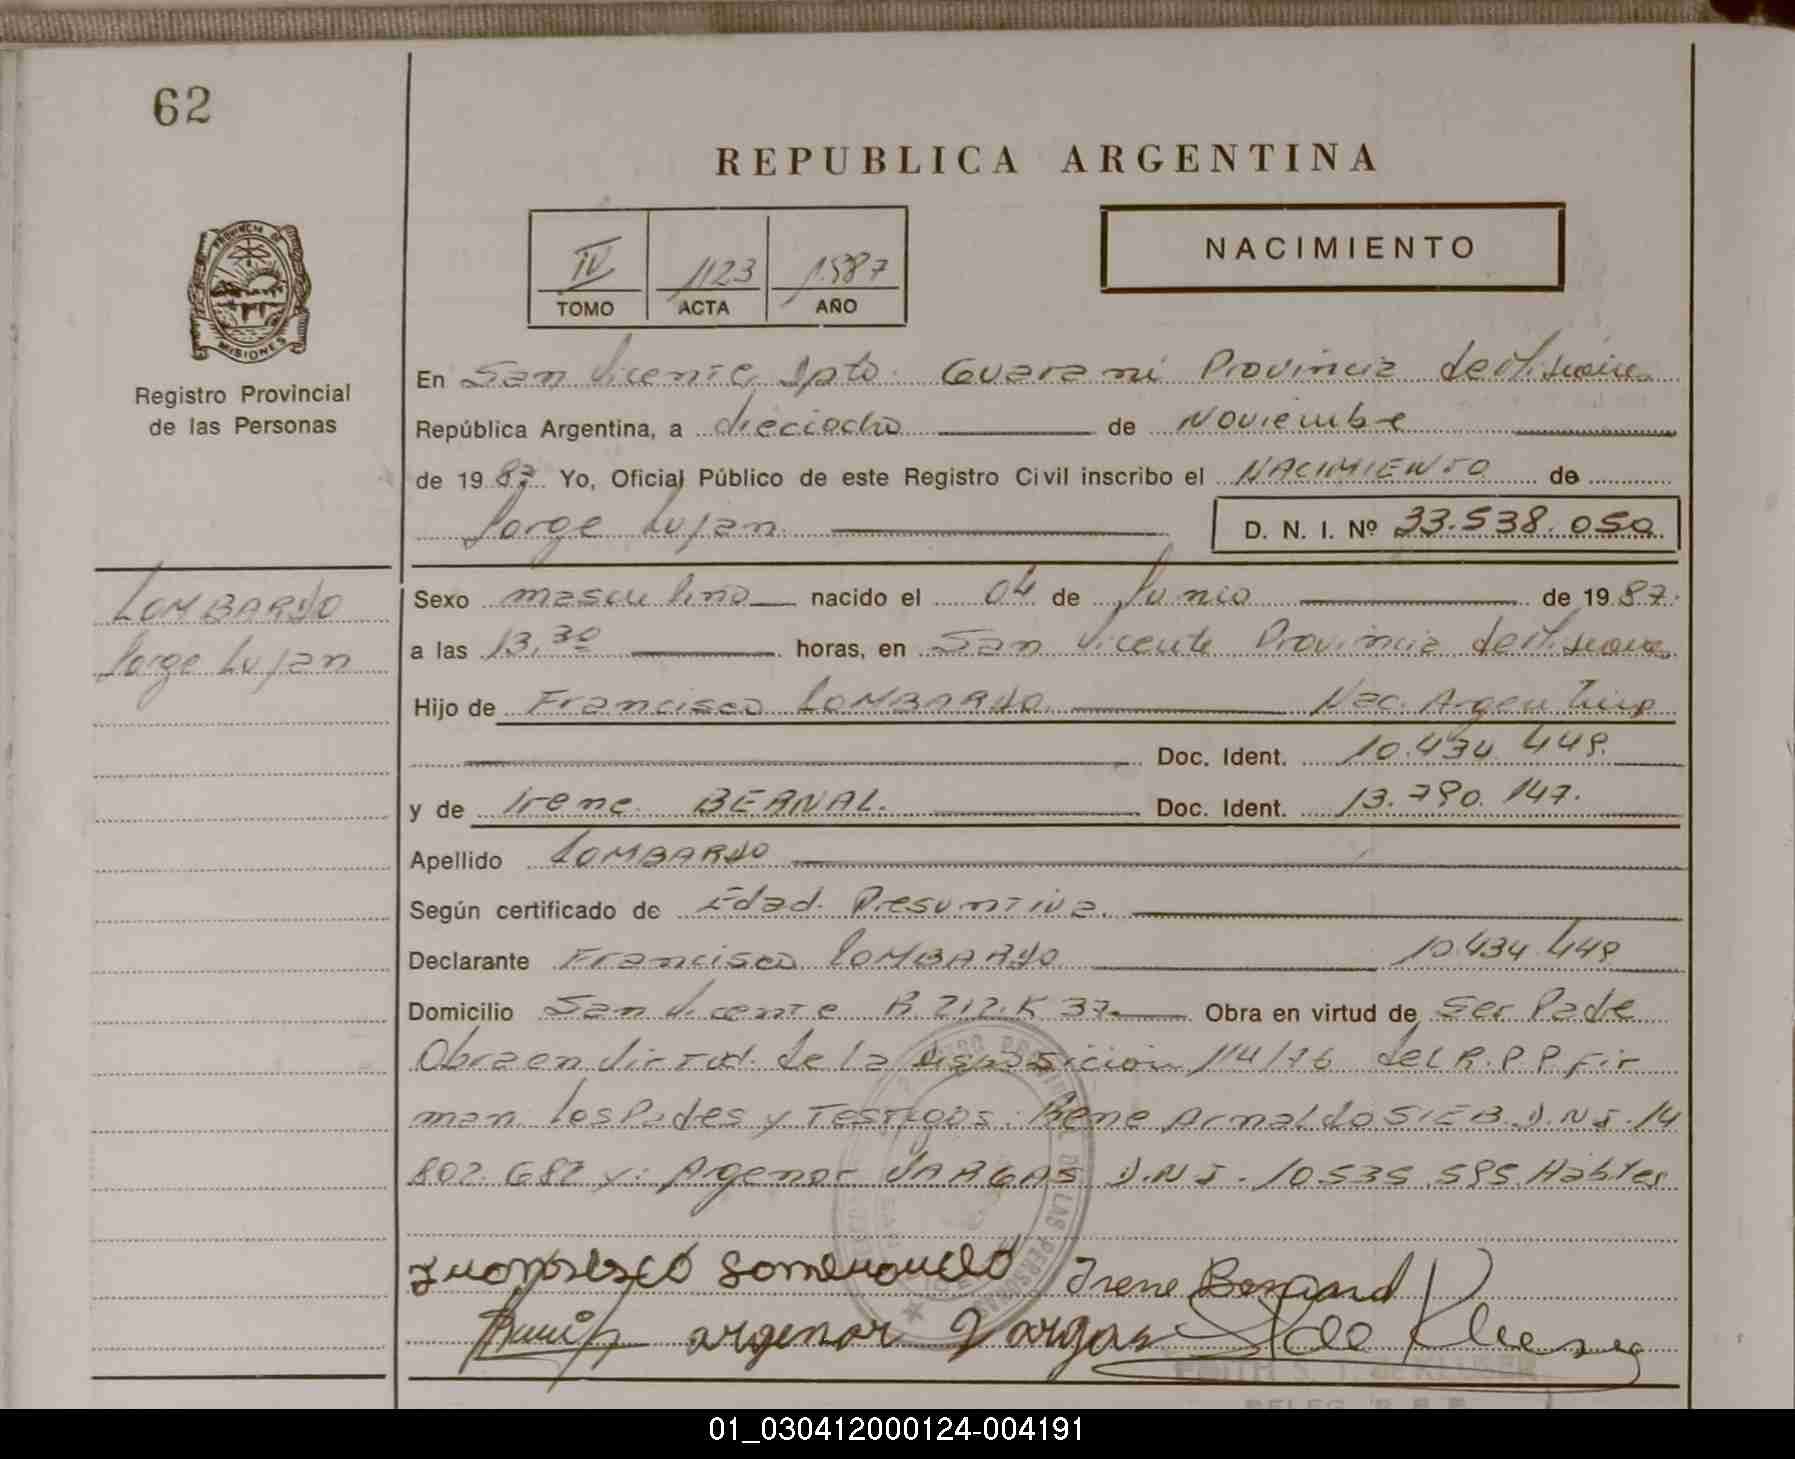 62
REPUBLICA ARGENTINA
NACIMIENTO
IV 1123 1987
TOMO ACTA AÑO
PROVINCIA DE
MISIONES
Registro Provincial
de las Personas
En San Vicente Dpto. Guarani Provincia de Misiones
República Argentina, a dieciocho de Noviembre
de 19 87 Yo, Oficial Público de este Registro Civil inscribo el NACIMIENTO de
Jorge Lujan. D. N. I. Nº 33.538.050
LOMBARDO
Jorge Lujan
Sexo masculino nacido el 04 de Junio de 19 87.
a las 13,30 horas, en San Vicente Provincia de Misiones
Hijo de Francisco LOMBARDO Nac. Argentino
Doc. Ident. 10.434.449.
y de Irene BERNAL. Doc. Ident. 13.790.147.
Apellido LOMBARDO
Según certificado de Edad Presuntiva.
Declarante Francisco LOMBARDO 10.434.449
Domicilio San Vicente R. 212. K 37. Obra en virtud de Ser Padre
Obra en virtud de la disposicion 114/76 del R.P.P. Fir
man los Padres y Testigos: Rene Arnaldo SIEB. D.N.I. 14
802.682 y: Argenor VARGAS D.N.I. 10.535.595. Habiles
Irene
argenor Vargas
01_030412000124-004191